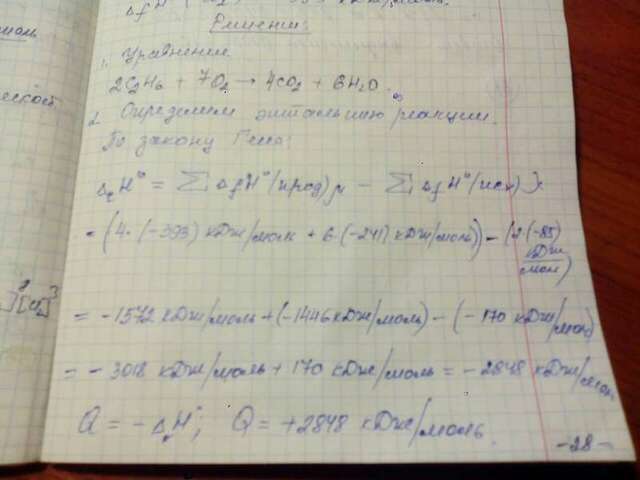 Решение:
1. Уравнение
2C₂H₆ + 7O₂ → 4CO₂ + 6H₂O.
2. Определяем энтальпию реакции.
По закону Гесса:
ΔrH° = ∑ΔfH°(прод) - ∑ΔfH°(исх)
= (4·(-393) кДж/моль + 6·(-241) кДж/моль) - (2·(-85) кДж/моль)
= -1572 кДж/моль + (-1446 кДж/моль) - (-170 кДж/моль)
= -3018 кДж/моль + 170 кДж/моль = -2848 кДж/моль
Q = -ΔrH°; Q = +2848 кДж/моль.
-28-